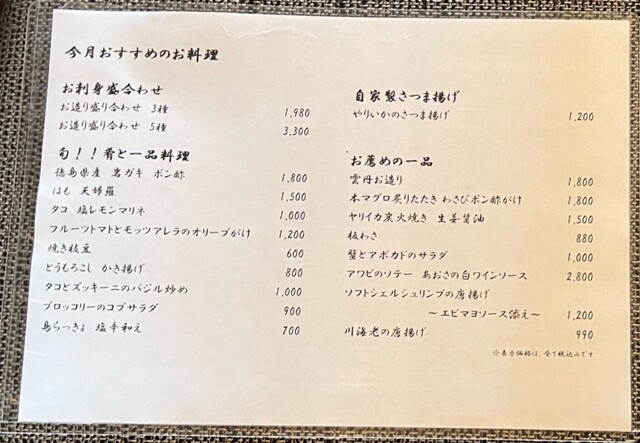 今月おすすめのお料理
お刺身盛合わせ
お造り盛り合わせ 3種 1,980
お造り盛り合わせ 5種 3,300
旬!!肴と一品料理
徳島県産 岩ガキ ポン酢 1,800
はも 天婦羅 1,500
タコ 塩レモンマリネ 1,000
フルーツトマトとモッツアレラのオリーブがけ 1,200
焼き枝豆 600
とうもろこし かき揚げ 800
タコとズッキーニのバジル炒め 1,000
ブロッコリーのコブサラダ 900
島らっきょ 塩辛和え 700
自家製さつま揚げ
やりいかのさつま揚げ 1,200
お薦めの一品
雲丹お造り 1,800
本マグロ炙りたたき わさびポン酢がけ 1,800
ヤリイカ炭火焼き 生姜醤油 1,500
板わさ 880
蟹とアボカドのサラダ 1,000
アワビのソテー あおさの白ワインソース 2,800
ソフトシェルシュリンプの唐揚げ
～エビマヨソース添え～ 1,200
川海老の唐揚げ 990
※表示価格は、全て税込みです